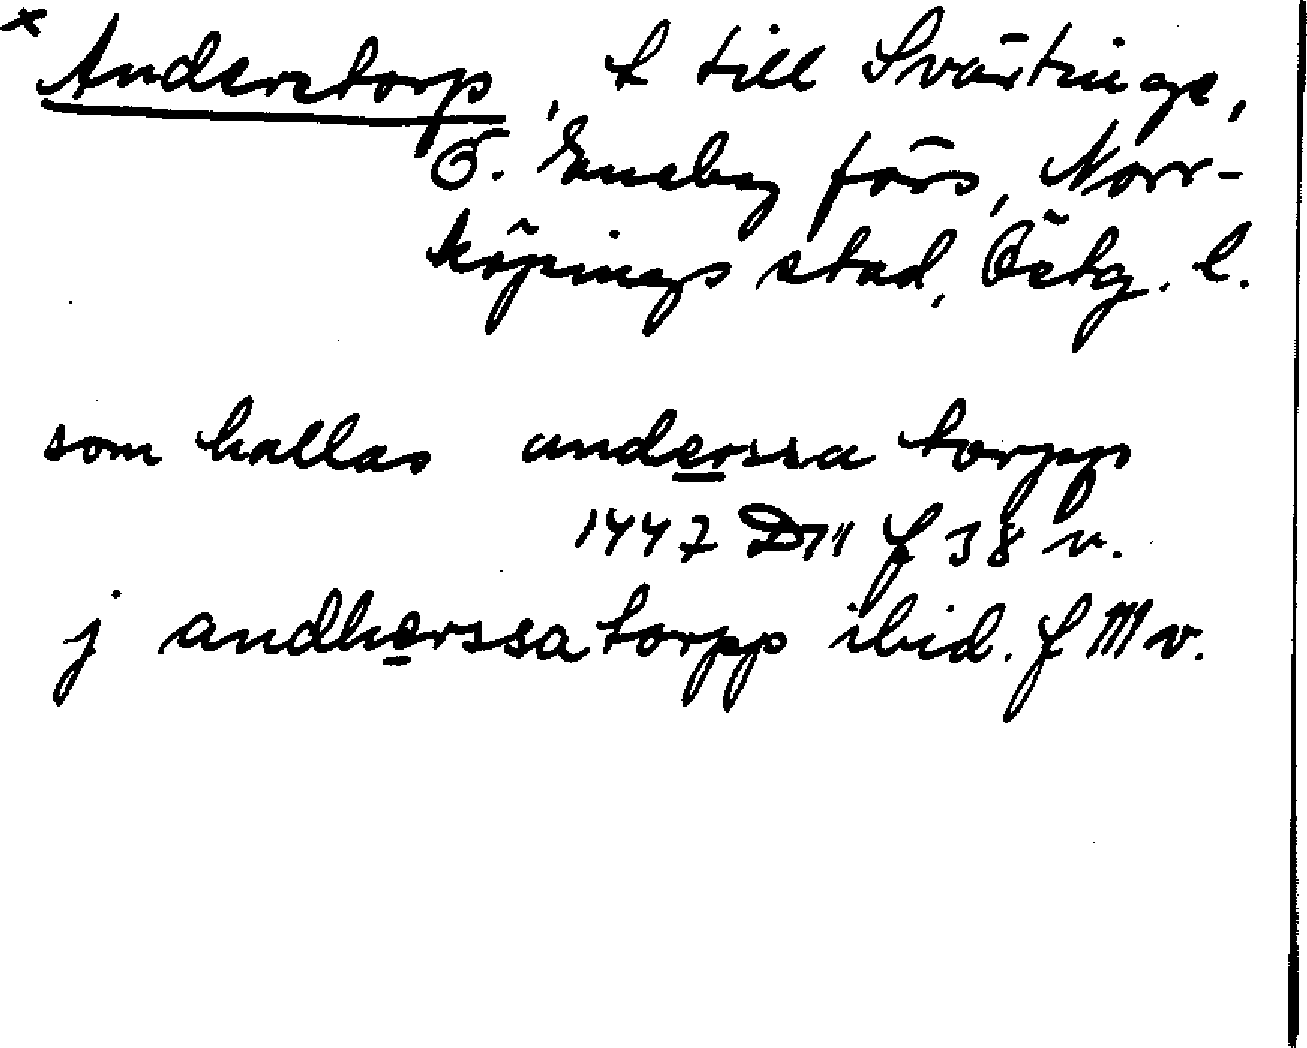 x Anderstorp, t till Svärtinge,
Ö. Eneby förs, Norr-
köpings stad, Östg. l.
som kallas anderssa torpp
1447 D 11 f 38 v.
j andherssa torpp ibid. f 111 v.